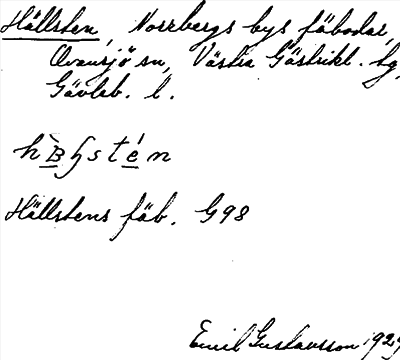 Hällsten, Norrbergs bys fäbodar,
Ovansjö sn, Västra Gästrikl. tg,
Gävleb. l.
Hällstens fäb. G98
Emil Gustavsson 1929